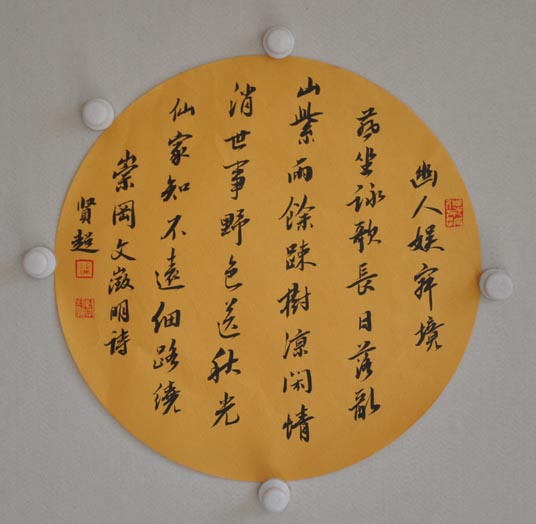 幽人娱寂境
燕坐詠歌長日落亂
山紫雨餘疎樹涼閑情
消世事野色送秋光
仙家知不遠細路繞
崇岡文徵明詩
賢超